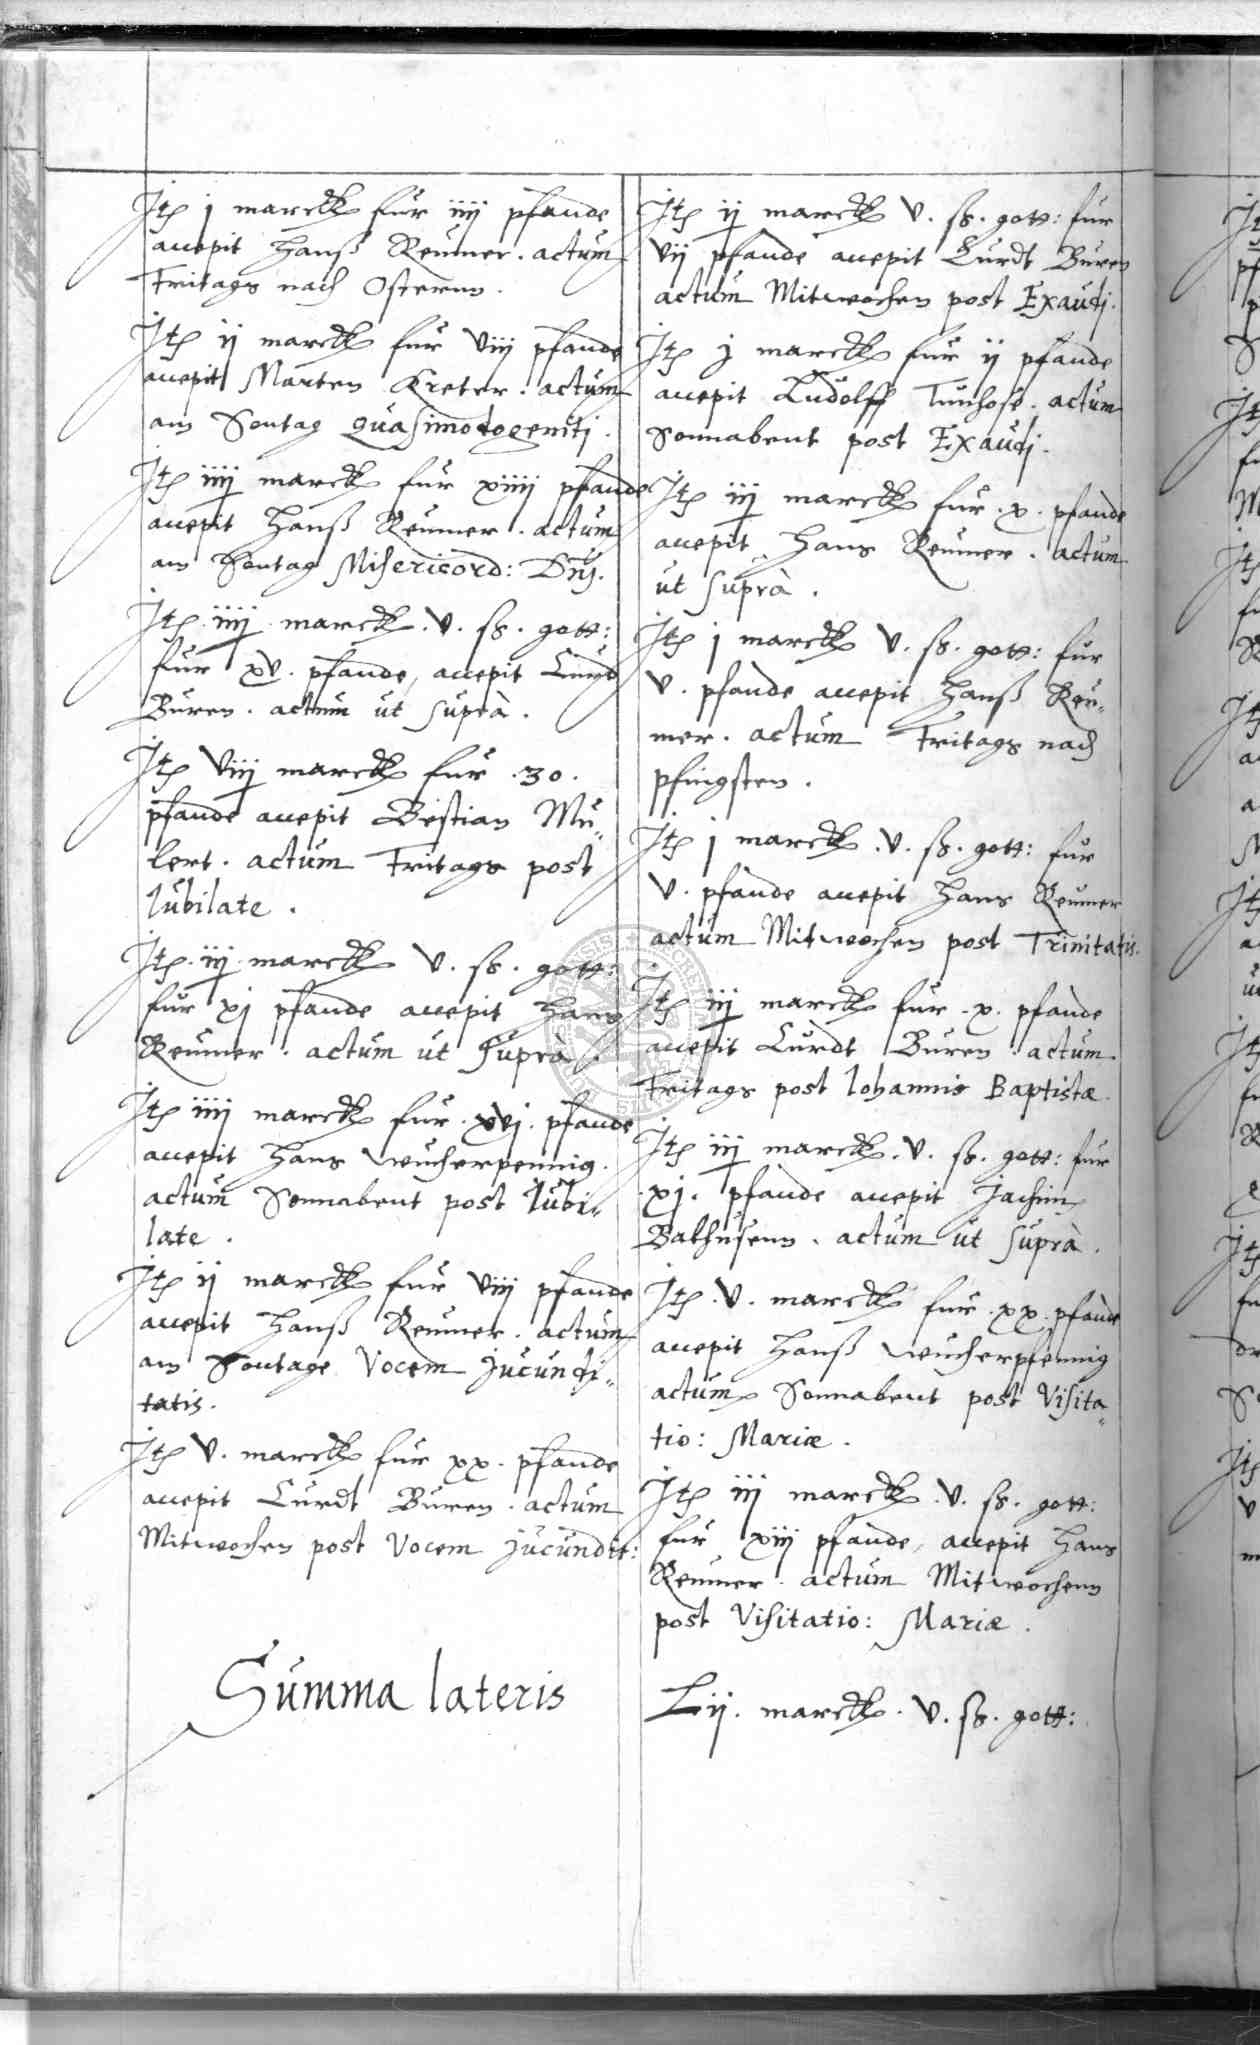 Itē j marck für iiij pfande
accepit Hanß Reumer. actum
Fritags nach Osternn.
Itē ij marck für viij pfande
accepit Marten Kreter. actum
am Sontag Quasimodogeniti.
Itē iiij marck für xiiij pfande
accepit Hanß Reumer. actum
am Sontag Misericord: Dnj.
Itē. iiij. marck. v. ß. gott:
für xv. pfande, accepit Curd
Buren. actum ut suprà.
Itē viij marck für .30.
pfande accepit Bestian Mu„
lert. actum Fritags post
Iubilate.
Itē. iij. marck v. ß. gott:
für xj pfande accepit Hans
Reumer. actum ut suprà.
Itē iiij marck für. xvj. pfande
accepit Hans Wucherpennig.
actum Sonnabent post Iubi„
late.
Itē ij marck für viij pfande
accepit Hanß Reumer. actum
am Sontage Vocem jucundi„
tatis.
Itē v. marck für xx. pfande
accepit Curdt Buren. actum
Mitwochen post Vocem jucundit:
Summa lateris
Itē ij marck v. ß. gott: für
vij pfande accepit Curdt Buren
actum Mitwochen post Exaudj.
Itē j marck für ij pfande
accepit Ludolff . actum
Sonnabent post Exaudj.
Itē iij marck für. x. pfande
accepit Hans Reumer. actum
ut suprà.
Itē j marck v. ß. gott: für
v. pfande accepit Hanß Reu„
mer. actum Fritags nach
pfingsten.
Itē j marck. v. ß. gott: für
v. pfande accepit Hans Reumer
actum Mitwochen post Trinitatis.
Itē iij marck für. x. pfande
accepit Curdt Buren. actum.
Fritags post Iohannis Baptistæ.
Itē iij marck. v. ß. gott: für
xj. pfande accepit Jachim
Balhusenn. actum ut suprà.
Itē. v. marck für. xx. pfande
accepit Hanß Wucherpfennig
actum Sonnabent post Visita„
tio: Mariæ.
Itē iij marck. v. ß. gott:
für xiij pfande, accepit Hans
Reumer. actum Mitwochenn
post Visitatio: Mariæ.
Lij. marck. v. ß. gott: